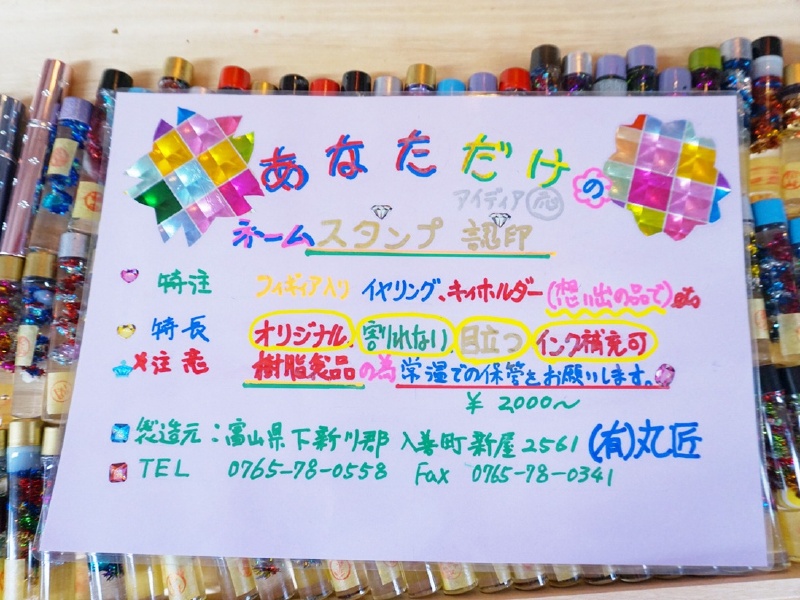 あなただけの
アイディア㊙
ネームスタンプ 認印
特注 フィギィア入り イヤリング、キィホルダー(想い出の品で)etc
特長 オリジナル 割れない 目立つ インク補充可
*注意 樹脂製品の為常温での保管をお願いします。
¥2,000〜
製造元:富山県下新川郡入善町新屋2561 (有)丸匠
TEL 0765-78-0558 Fax 0765-78-0341